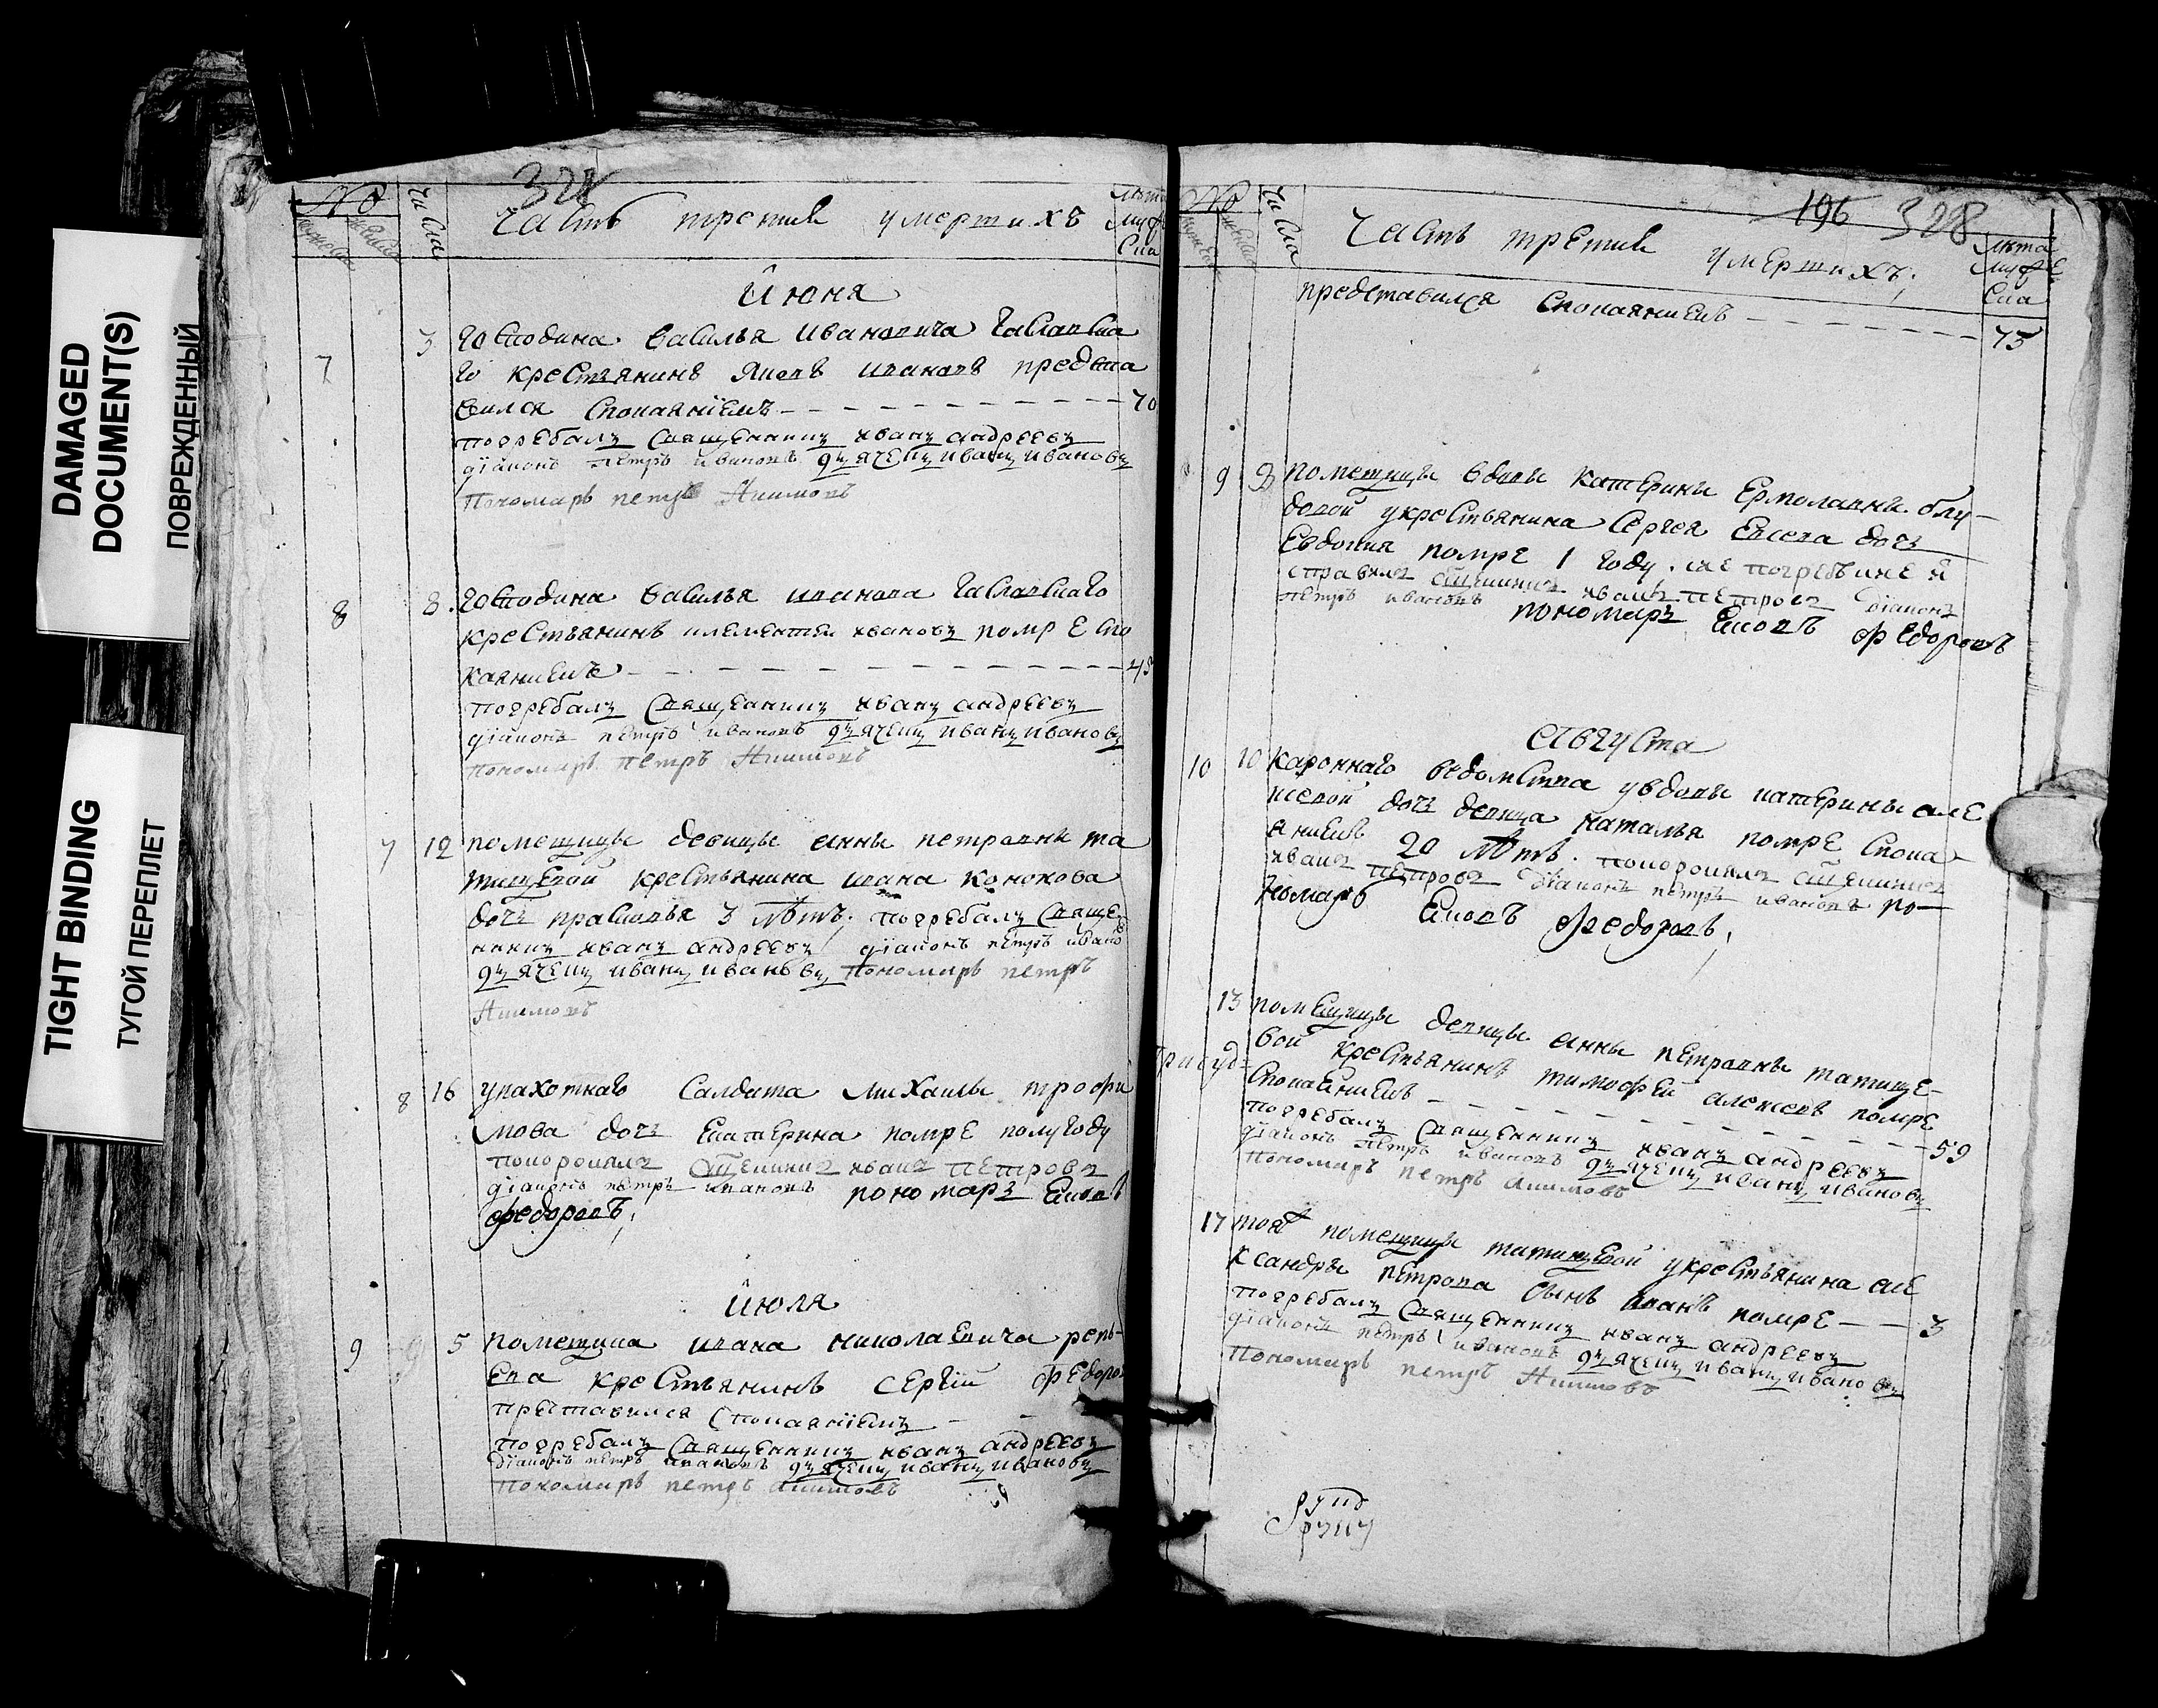 DAMAGED
DOCUMENT(S)
ПОВРЕЖДЕННЫЙ
TIGHT BINDING
ТУГОЙ ПЕРЕПЛЕТ
№
числа
часть третия умертихъ
Июня
7
3
господина василья ивановича чаславска
го крестьянинъ яковъ ивановъ предста
вился спокаяніемъ 70
погребалъ священникъ иванъ андреевъ
діаконъ петръ ивановъ дьячекъ иванъ ивановъ
Пономарь петръ Акимовъ
8
8
господина василья иванова чаславскаго
крестьянинъ клементеи ивановъ помре спо
каяниемъ 45
погребалъ священникъ иванъ андреевъ
діаконъ петръ ивановъ дьячекъ иванъ ивановъ
Пономарь петръ Акимовъ
7 12 помещицы девицы анны петровны та
тищевой крестьянина ивана
дочь прасковья 3 летъ; погребалъ священ
никъ иванъ андреевъ діаконъ петръ ивано
дьячекъ иванъ ивановъ Пономарь петръ
Акимовъ
8 16 упахотнаго салдата михаилы трофи
мова дочь екатерина помре полугоду
похоронялъ сщенникъ иванъ петровъ
діаконъ петръ ивановъ пономарь
федоровъ;
Июля
9 5 помещика ивана николаевича репь-
ева крестьянинъ сергій федоро
преставился спокаяніемъ
погребалъ священникъ иванъ андреевъ
діаконъ петръ ивановъ дьячекъ иванъ ивановъ
Пономарь петръ акимовъ
196 328
№
числа
часть третия умертихъ;
лета
представился спокаяниемъ 75
9
помещицы вдовы катерины ермолавны блу-
довой укрестьянина сергея евсева дочь
евдокия помре 1 году. погребение
справлялъ сщенникъ иванъ петровъ діаконъ
петръ ивановъ пономарь федоровъ
августа
10 10 каронного ведомства увдовы катерины але
ксевой дочь девица наталья помре спока
яниемъ 20 летъ. похоронялъ сщенникъ
иванъ петровъ діаконъ петръ ивановъ по-
номарь федоровъ;
13 помещицы девицы анны петровны татище-
вой крестьянинъ тимофей алексевъ помре
спокаяниемъ 59
погребалъ священникъ иванъ андреевъ
діаконъ петръ ивановъ дьячекъ иванъ ивановъ
Пономарь петръ акимовъ
17 тояж помещицы татищевой укрестьянина але
ксандры петрова сынъ иванъ помре 3
погребалъ священникъ иванъ андреевъ
діаконъ петръ ивановъ дьячекъ иванъ ивановъ
Пономарь петръ Акимовъ